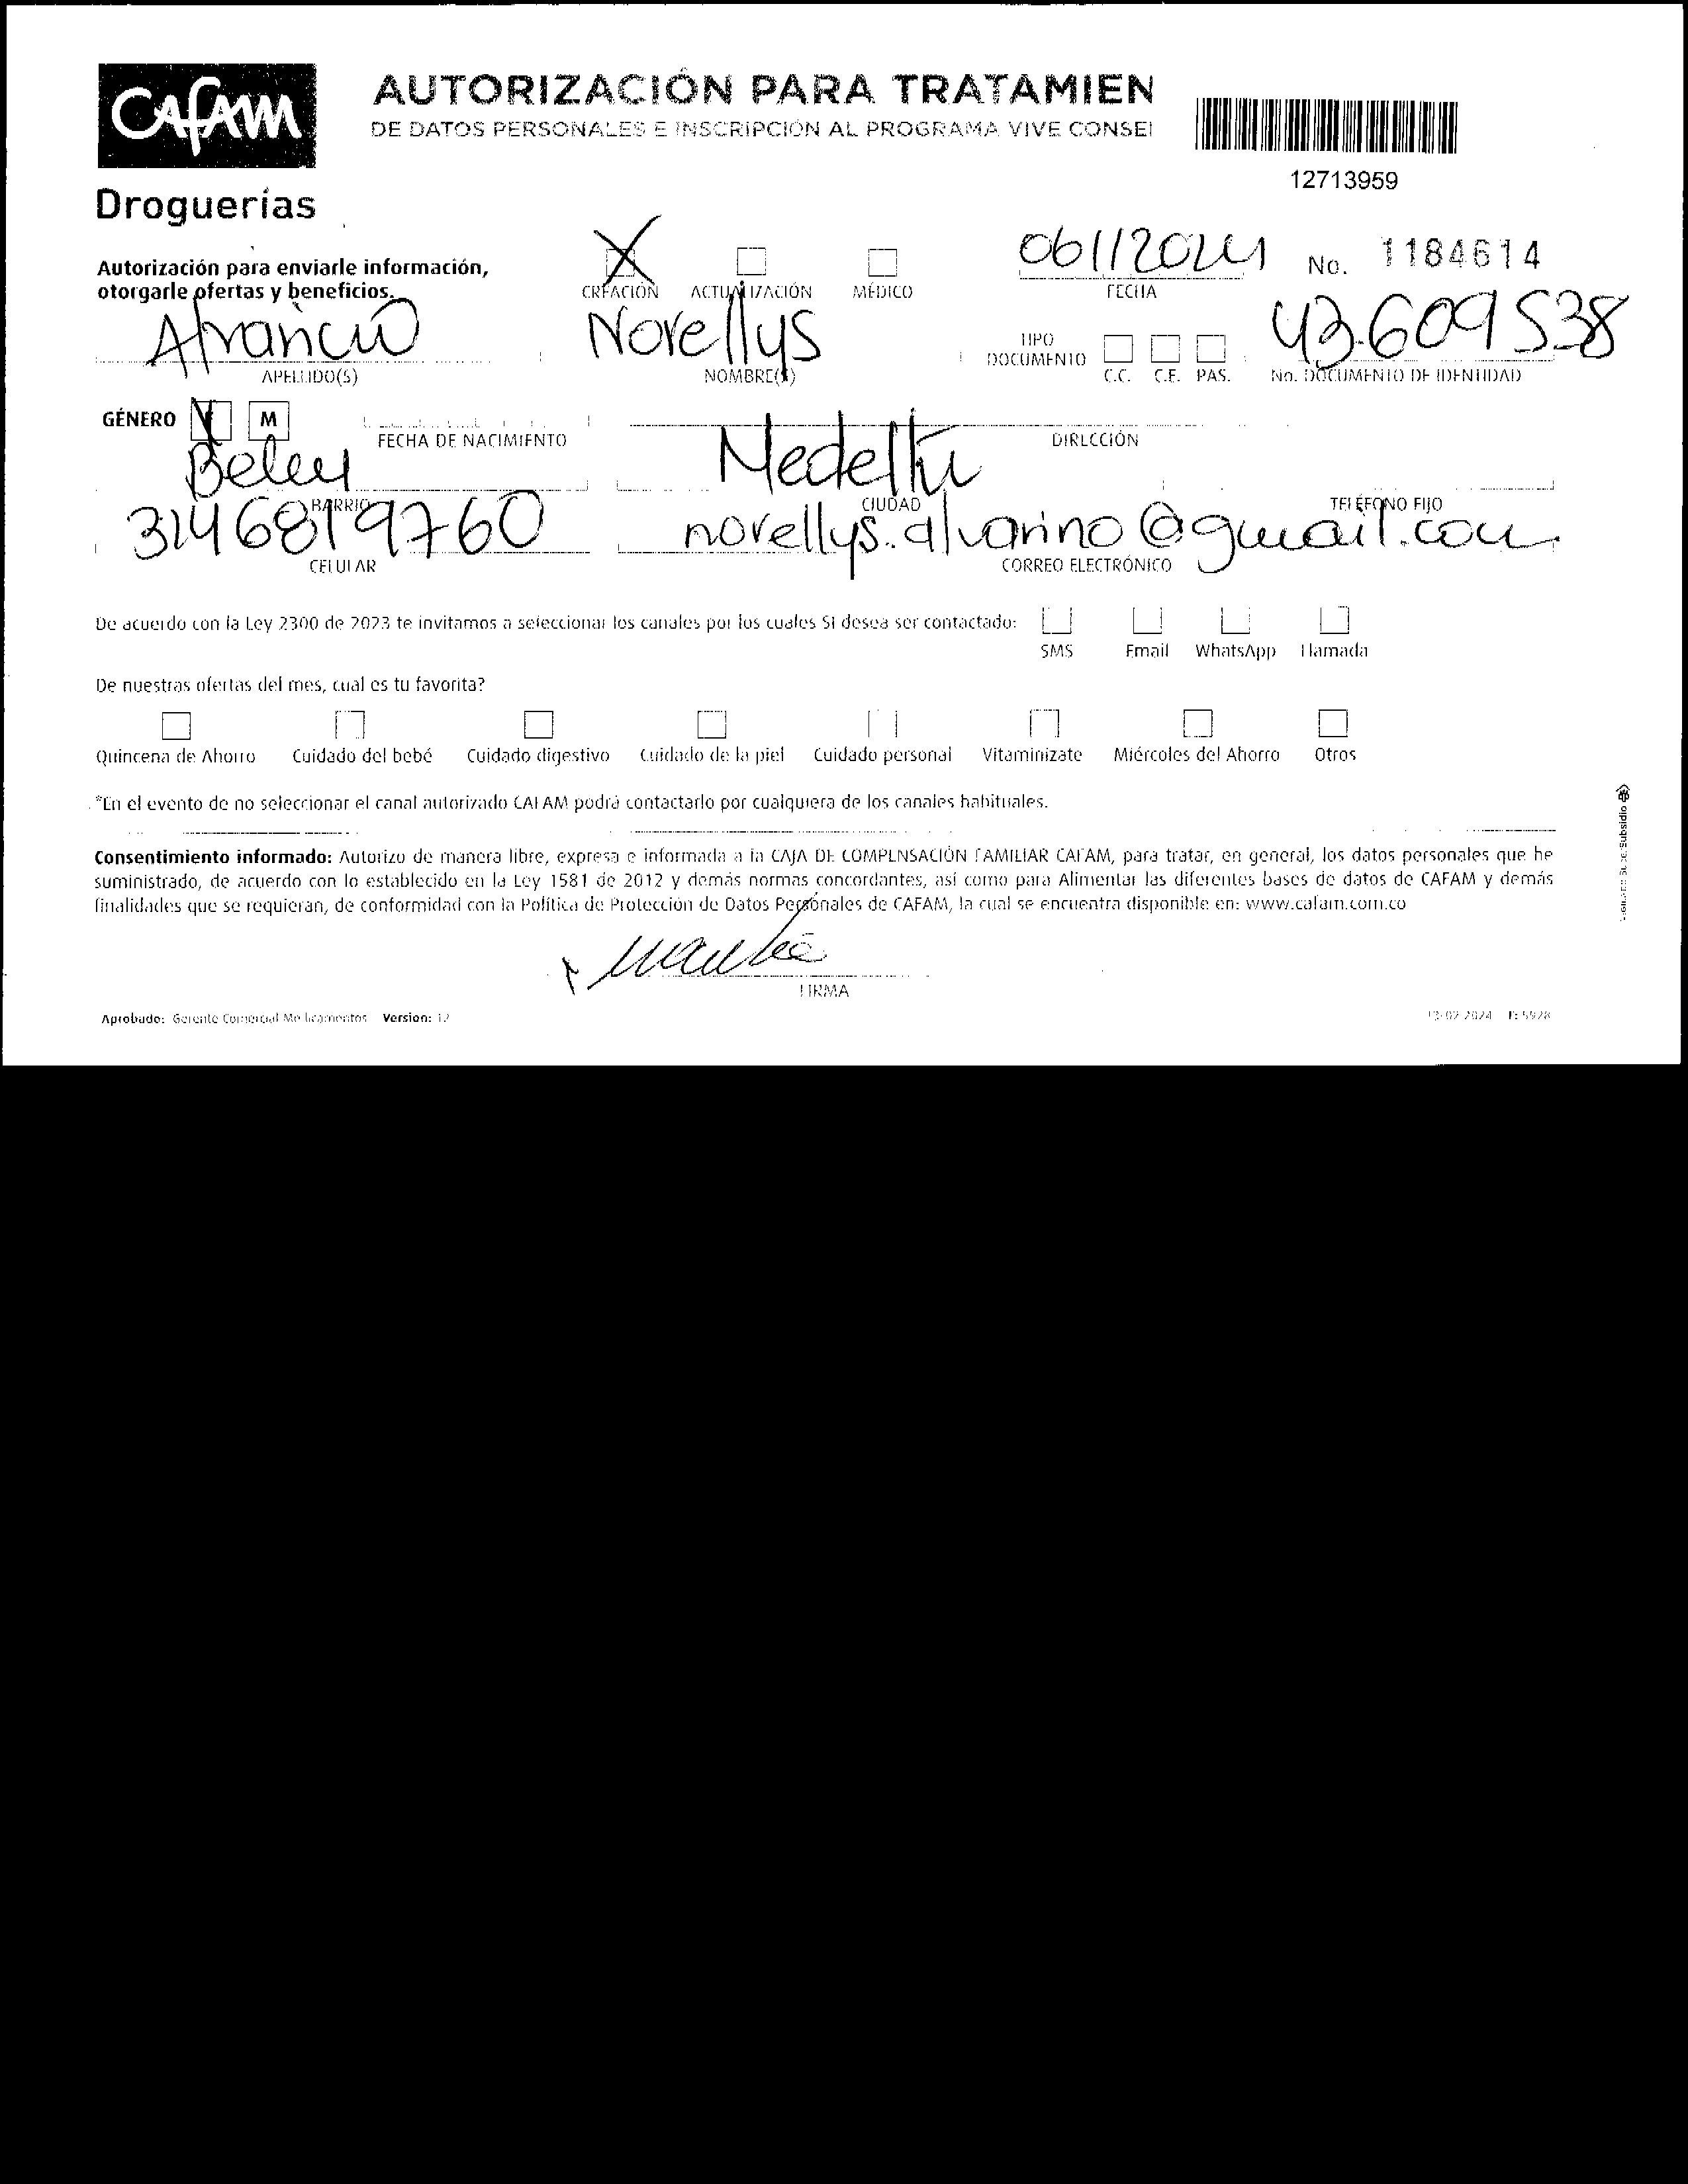 CAFAM
Droguerías
AUTORIZACIÓN PARA TRATAMIEN
DE DATOS PERSONALES E INSCRIPCIÓN AL PROGRAMA VIVE CONSE
12713959
Autorización para enviarle información,
otorgarle ofertas y beneficios.
CREACIÓN ACTUALIZACIÓN MÉDICO
FECHA
No. 1184614
Novellys 43.609538
APELLIDO(S) NOMBRE(S) TIPO DOCUMENTO C.C. C.E. PAS. No. DOCUMENTO DE IDENTIDAD
GÉNERO M FECHA DE NACIMIENTO DIRECCIÓN
Belen Medellín
BARRIO CIUDAD TELÉFONO FIJO
3146819760 novellys.alvarino@gmail.com
CELULAR CORREO ELECTRÓNICO
De acuerdo con la Ley 2300 de 2023 te invitamos a seleccionar los canales por los cuales SI desea ser contactado:
SMS Email WhatsApp Llamada
De nuestras ofertas del mes, cual es tu favorita?
Quincena de Ahorro Cuidado del bebé Cuidado digestivo Cuidado de la piel Cuidado personal Vitaminízate Miércoles del Ahorro Otros
*En el evento de no seleccionar el canal autorizado CAFAM podrá contactarlo por cualquiera de los canales habituales.
Consentimiento informado: Autorizo de manera libre, expresa e informada a la CAJA DE COMPENSACIÓN FAMILIAR CAFAM, para tratar, en general, los datos personales que he
suministrado, de acuerdo con lo establecido en la Ley 1581 de 2012 y demás normas concordantes, así como para Alimentar las diferentes bases de datos de CAFAM y demás
finalidades que se requieran, de conformidad con la Política de Protección de Datos Personales de CAFAM, la cual se encuentra disponible en: www.cafam.com.co
FIRMA
Aprobado: Gerente Comercial Medicamentos Version: 12
13-02-2024 F: 5928